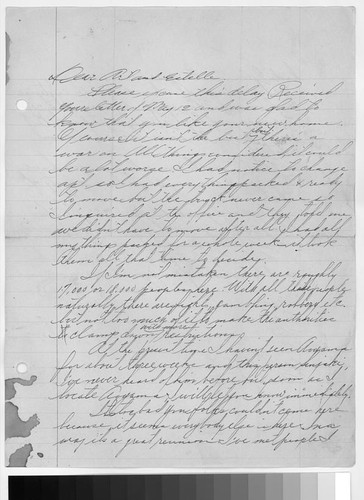 Dear Art and Estelle,
Please excuse this delay. Received
your letter of May 12 and was glad to
know that you like your new home.
Of course it isn't the best but there's a
war on. All things considered it could
be a lot worse. I had notice to change
apt. so had everything packed & ready
to move but the truck never came so
I inquired at the office and they told me
we didn't have to move after all. I had all
my things packed for a whole week and it took
them all that time to
If I'm not mistaken there are roughly
17,000 or 18,000 people here. With all these people
naturally there are fights, gambling, robbery etc.
but not too much of it to make the authorities
to clamp down with more restrictions.
At the present time I haven't seen Aoyama
for about three weeks and they
I've never heard of him before but soon as I
locate Aoyama I will let you know immediately.
It's too bad your folks couldn't come here
because it seems everybody else is here. In a
way it's a great reunion. I've met people I